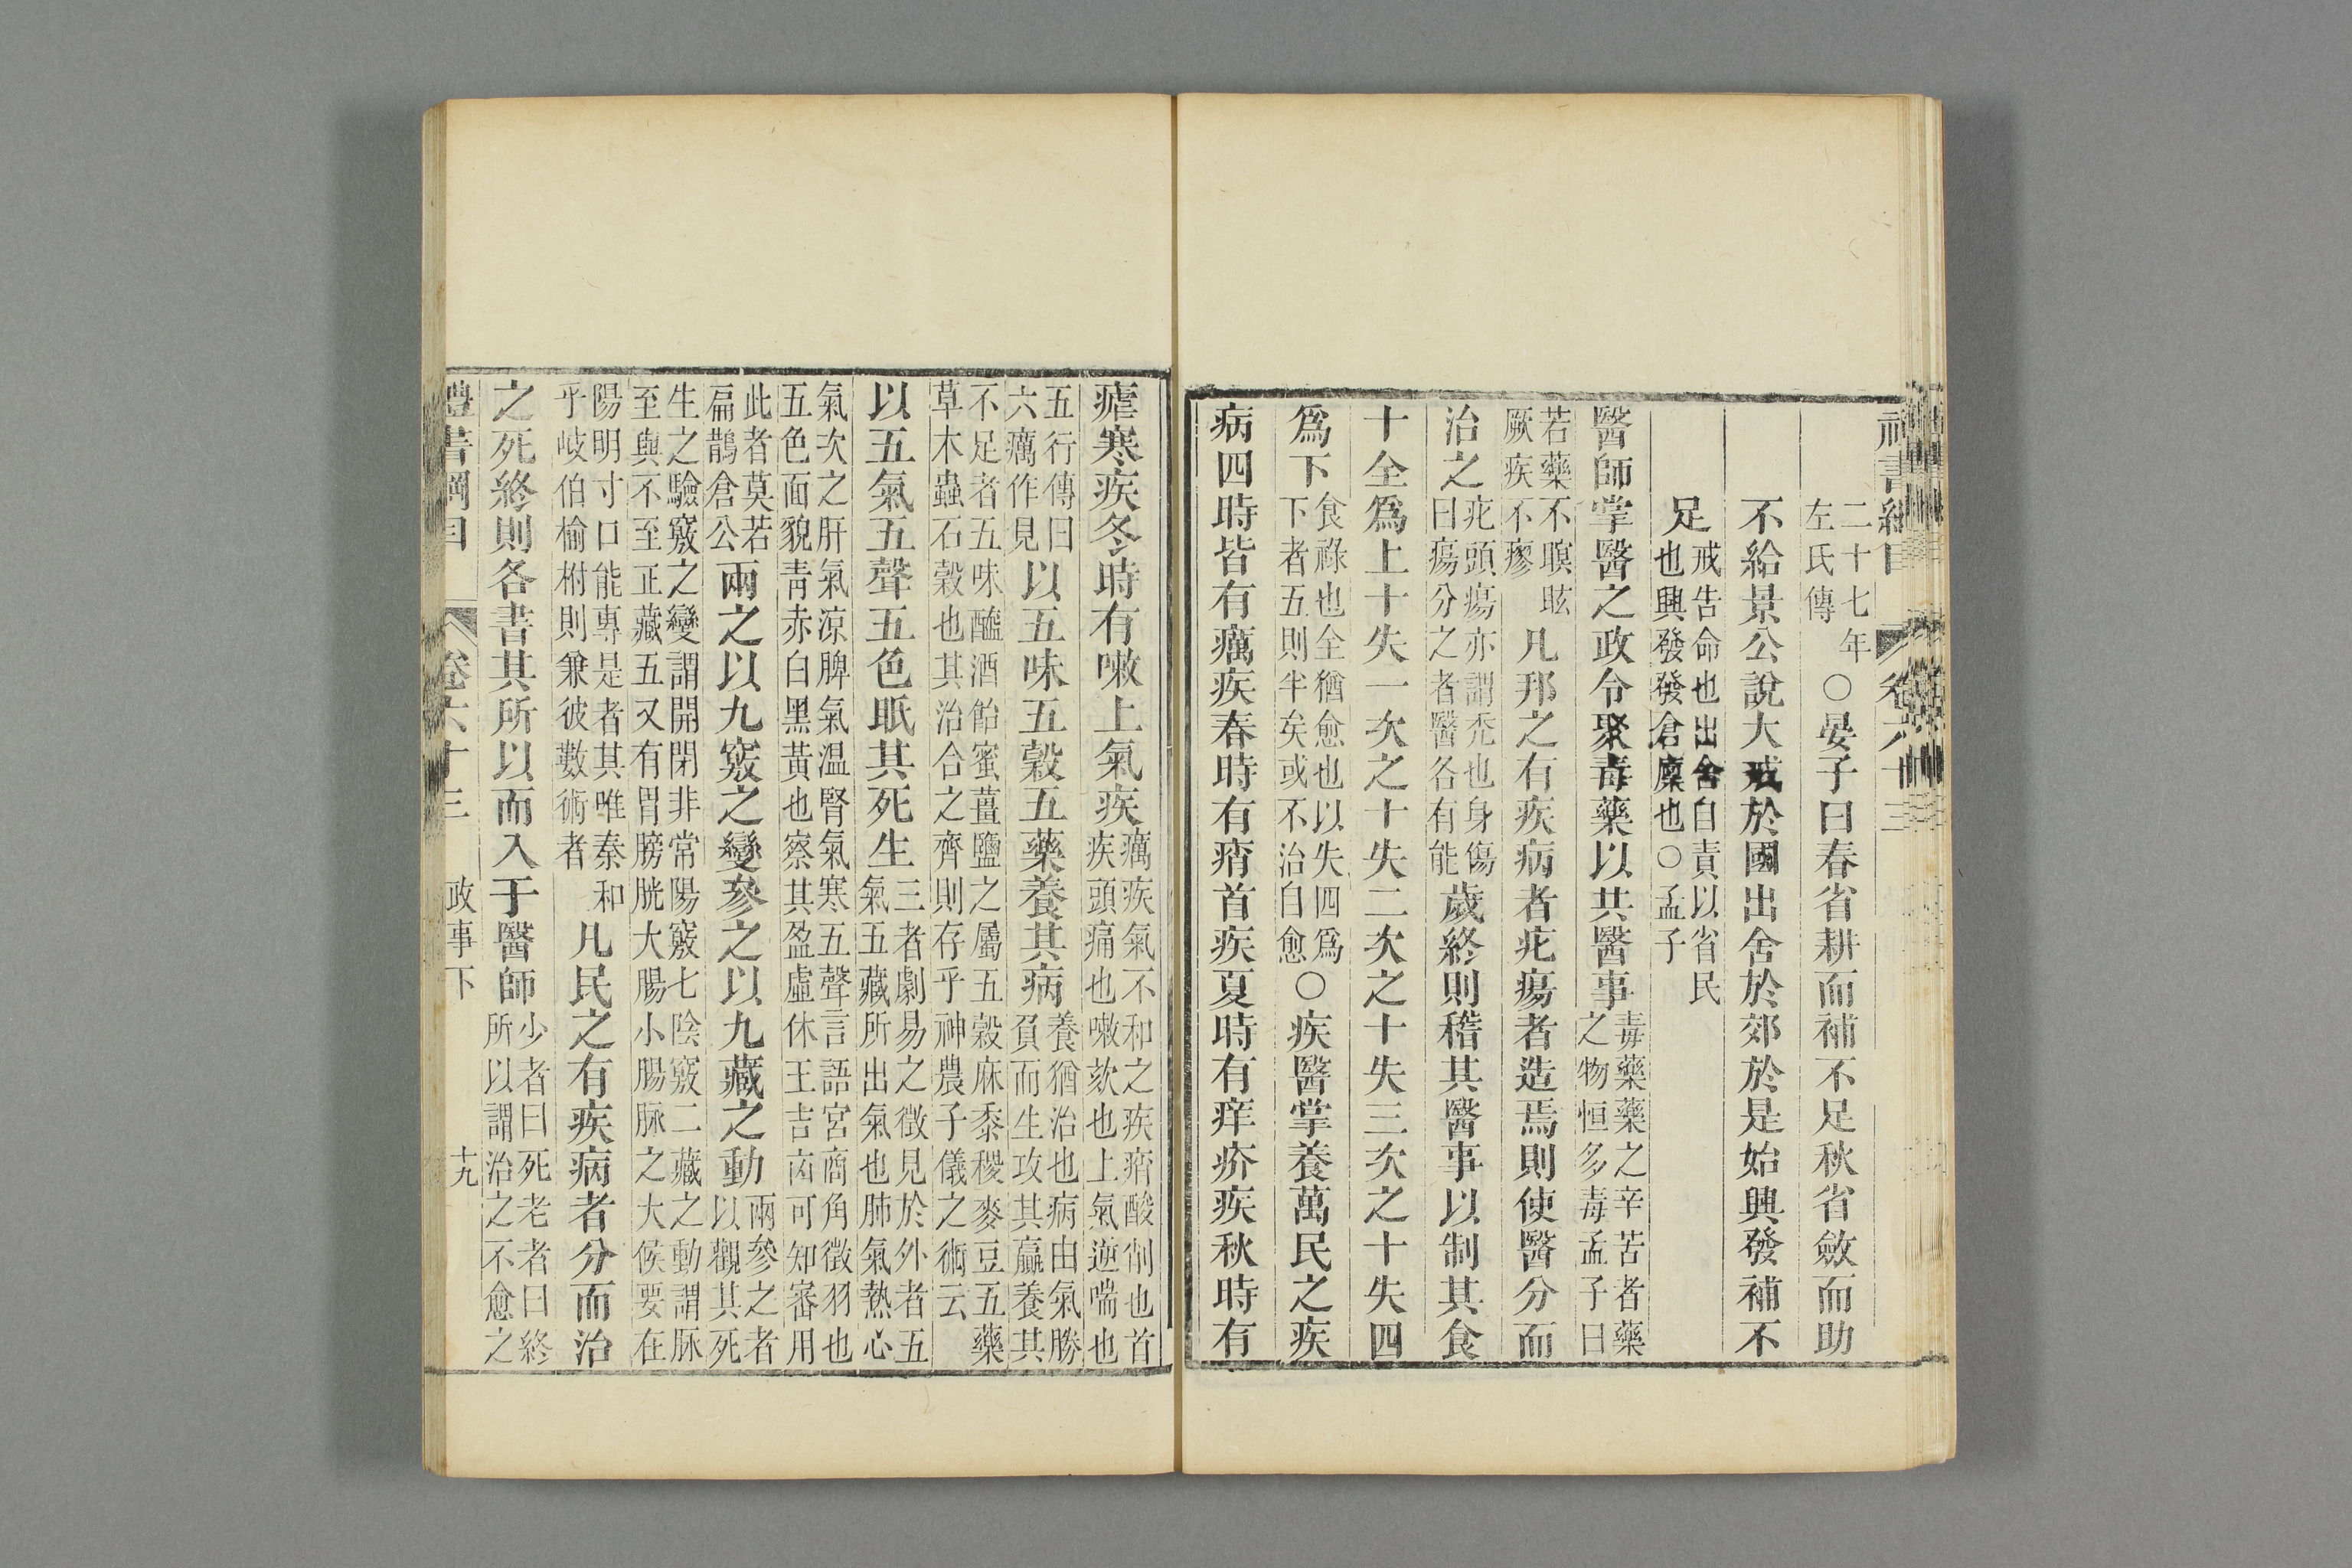 禮書綱目 卷六十三
二十七年
左氏傳
○晏子曰春省耕而補不足秋省斂而助
不給景公說大戒於國出舍於郊於是始興發補不
足
戒告命也出舍自責以省民
也興發發倉廩也○孟子
醫師掌醫之政令聚毒藥以共醫事
毒藥藥之辛苦者藥
之物恒多毒孟子曰
若藥不瞑眩
厥疾不瘳
凡邦之有疾病者疕瘍者造焉則使醫分而
治之
疕頭瘍亦謂禿也身傷
曰瘍分之者醫各有能
歲終則稽其醫事以制其食
十全爲上十失一次之十失二次之十失三次之十失四
爲下
食祿也全猶愈也以失四爲
下者五則半矣或不治自愈
○疾醫掌養萬民之疾
病四時皆有癘疾春時有痟首疾夏時有痒疥疾秋時有
瘧寒疾冬時有嗽上氣疾
癘疾氣不和之疾痟酸削也首
疾頭痛也嗽欬也上氣逆喘也
五行傳曰
六癘作見
以五味五穀五藥養其病
養猶治也病由氣勝
負而生攻其贏養其
不足者五味醯酒飴蜜薑鹽之屬五穀麻黍稷麥豆五藥
草木蟲石穀也其治合之齊則存乎神農子儀之術云
以五氣五聲五色眂其死生
三者劇易之徵見於外者五
氣五藏所出氣也肺氣熱心
氣次之肝氣涼脾氣温腎氣寒五聲言語宮商角徵羽也
五色面貌青赤白黑黃也察其盈虛休王吉㐫可知審用
此者莫若
扁鵲倉公
兩之以九竅之變參之以九藏之動
兩參之者
以觀其死
生之驗竅之變謂開閉非常陽竅七陰竅二藏之動謂脉
至與不至正藏五又有胃膀胱大腸小腸脉之大候要在
陽明寸口能專是者其唯秦和
乎岐伯榆柎則兼彼數術者
凡民之有疾病者分而治
之死終則各書其所以而入于醫師
少者曰死老者曰終
所以謂治之不愈之
禮書綱目 卷六十三 政事下 十九